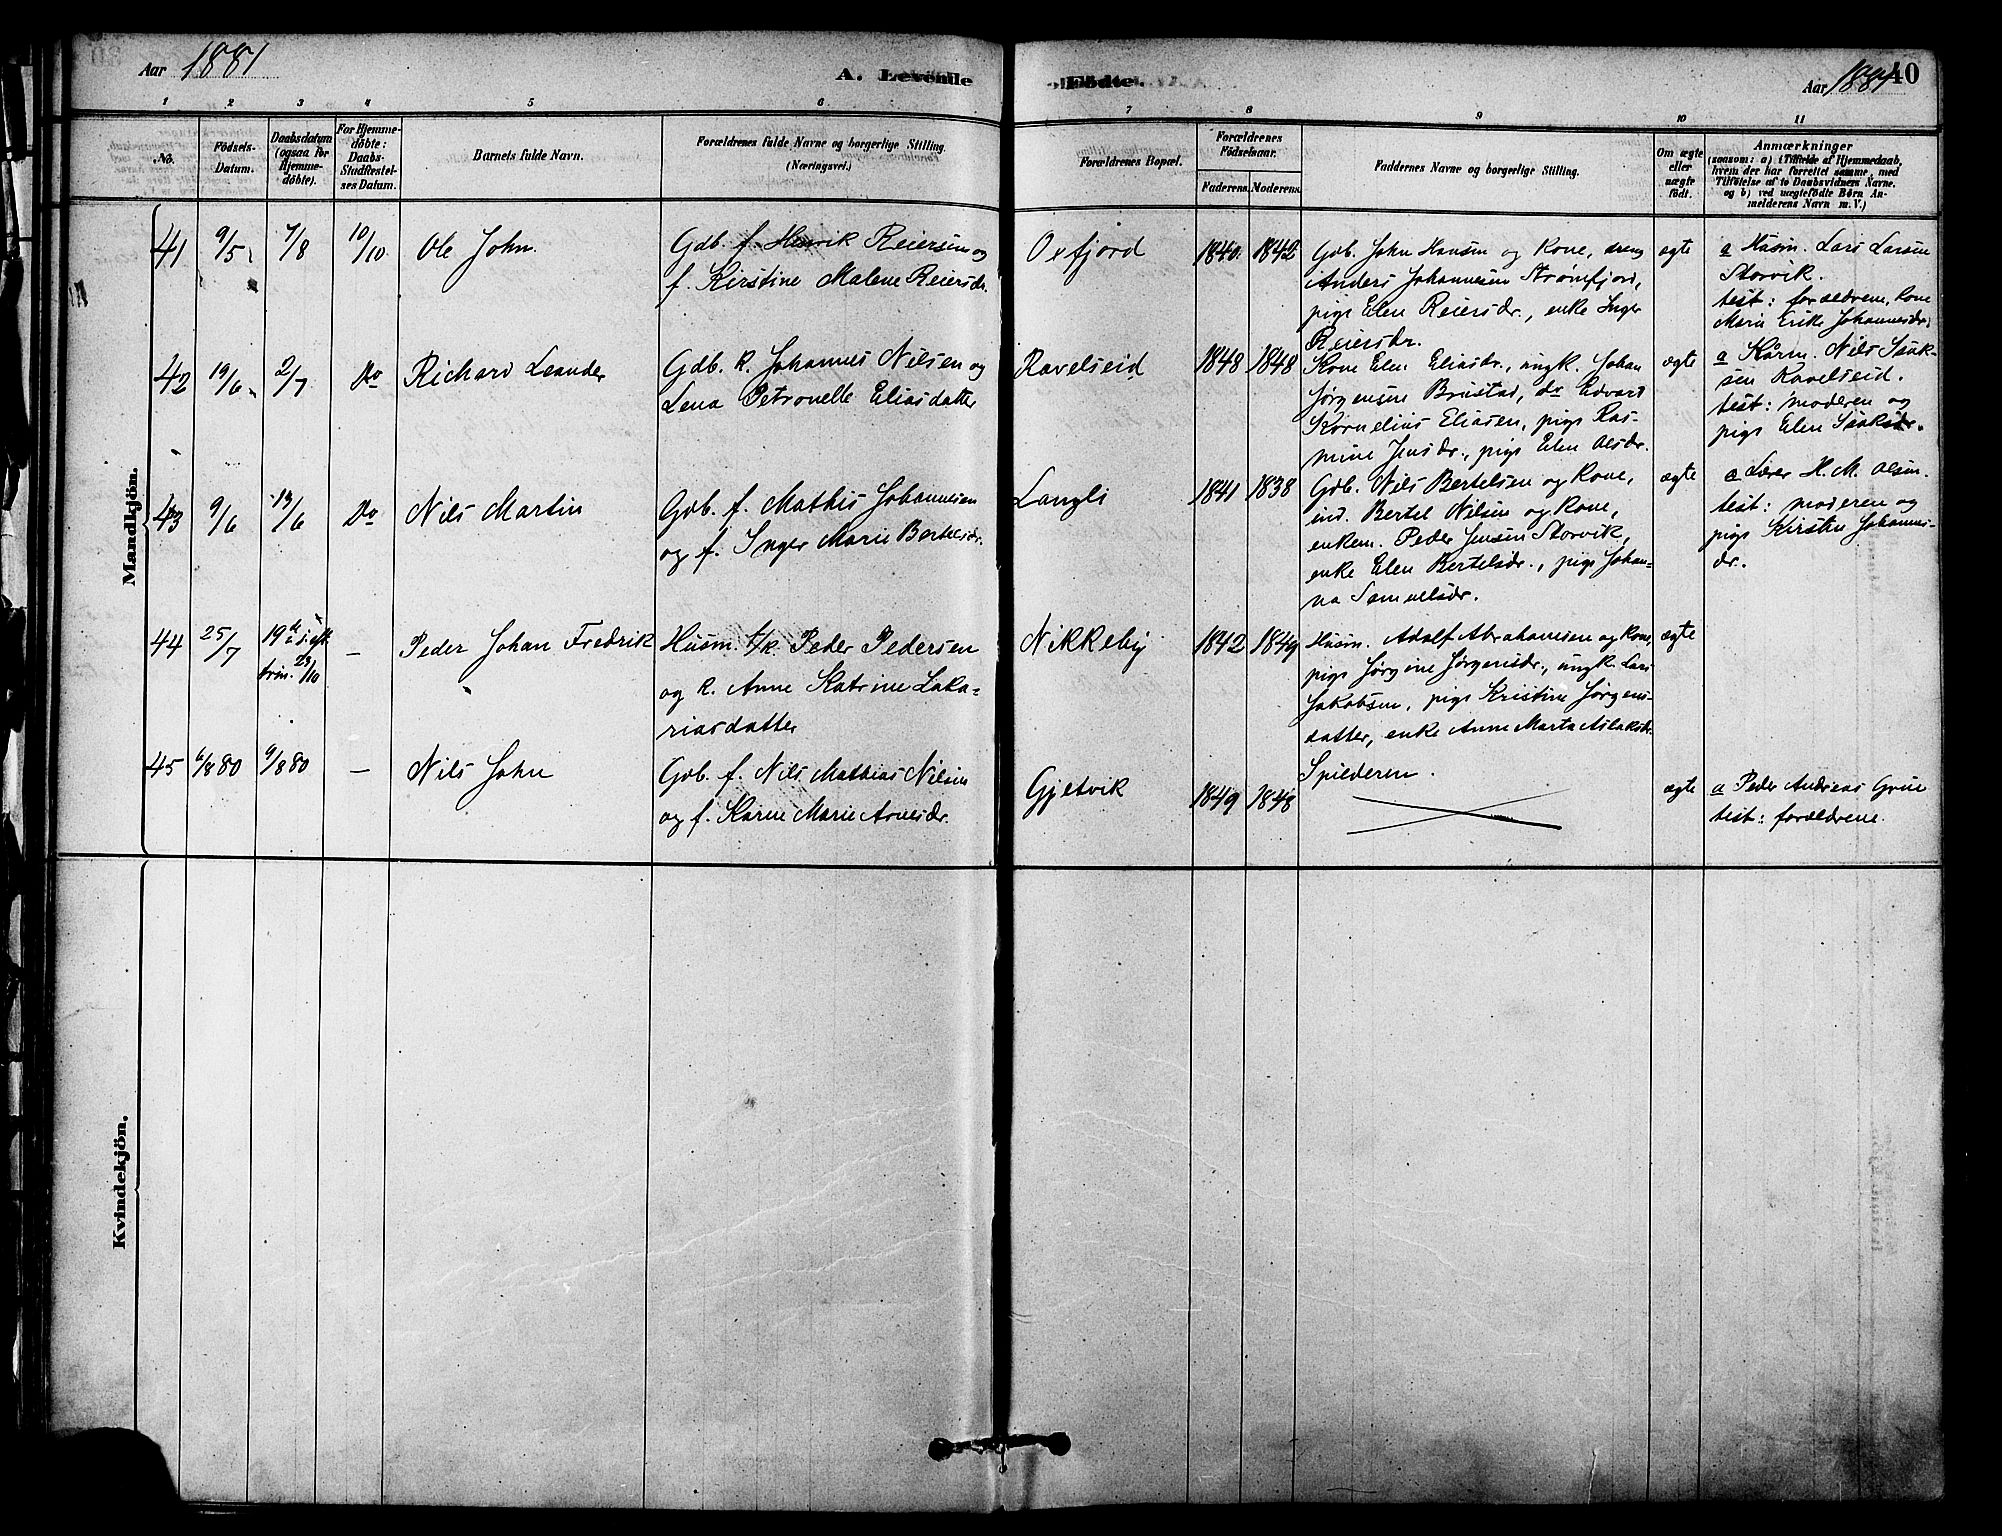 Aar 1881
A. Levende
Födte.
Aar 1881 40
1 2 3 4 5 6 7 8 9 10 11
No.
Födsels-
Datum.
Daabsdatum
(ogsaa for
Hjemme-
døbte).
For Hjemme-
døbte:
Daabs-
Stadfæstel-
ses Datum.
Barnets fulde Navn.
Forældrenes fulde Navne og borgerlige Stilling.
(Næringsvei.)
Forældrenes Bopæl.
Forældrenes
Födselsaar.
Faderens. Moderens.
Faddernes Navne og borgerlige Stilling.
Om ægte
eller
uægte
födt.
Anmærkninger
(saasom: a) i Tilfælde af Hjemmedaab,
hvem der har forrettet samme, med
Tilföielse af to Daabsvidners Navne,
og b) ved uægtefödte Börn An-
melderens Navn m. V.)
Mandkjön.
41 9/5 7/8 10/10 Ole John.
Gdb. f. Henrik Reiersen og
f. Kirstine Malene Reiersdr.
Oxfjord 1840. 1842
Gdb. John Hansen og Kone, dreng
Anders Johannesen Strømfjord,
pige Elen Reiersdr., enke Inger
Reiersdr.
ægte
a Husm. Lars Larsen
Storvik.
test: forældrene, Kone
Marie Erike Johannesdr.
42 19/6 2/7 Do Richard Leander
Gdb. k. Johannes Nilsen og
Lena Petronelle Eliasdatter
Ravelseid 1848 1848
Kone Elen Eliasdr., ungk. Johan
Jørgensen Brustad, do Edvart
Kornelius Eliasen, pige Ras-
mine Jensdr., pige Elen Olsdr.
ægte
a Kårm. Nils Isak-
sen Ravelseid.
test: moderen og
pige Elen Isaksdr.
43 9/6 19/6 Do Nils Martin
Gdb. f. Mathis Johannesen
og f. Inger Marie Bertelsdr.
Langli 1841 1838
Gdb. Nils Bertelsen og Kone,
ind. Bertel Nilsen og Kone,
enkem. Peder Jensen Storvik,
enke Elen Bertelsdr., pige Johan-
na Samuelsdr.
ægte
a Lærer H. M. Olsen
test: moderen og
pige Kirsten Johannes-
dr.
44 25/7 19de s. eft.
trin. 23/10 — Peder Johan Fredrik
Husm. f/k. Peder Pedersen
og k. Anne Katrine Zaka-
riasdatter
Nikkeby 1842 1849
Husm. Adolf Abrahamsen og Kone,
pige Jørgine Jørgensdr., ungk. Lars
Jakobsen, pige Kristine Jørgens-
datter, enke Anne Marta Aslaksdr.
Spilderen.
ægte
45 6/8 80 9/8 80 — Nils John
Gdb. f. Nils Mathias Nilsen
og f. Karen Marie Arnesdr.
Gjetvik 1849 1848
ægte
a Peder Andreas
test: forældrene.
Kvindekjön.